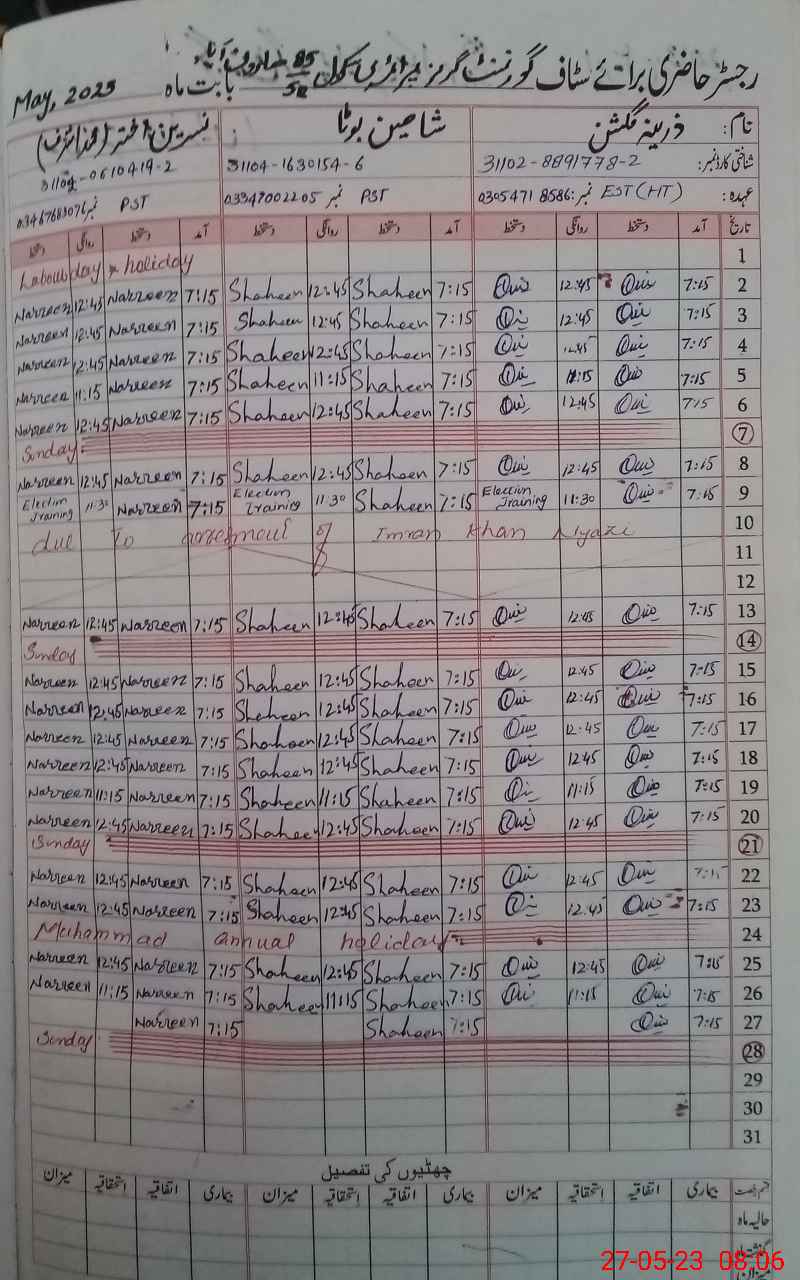 رجسٹر حاضری برائے سٹاف گورنمنٹ گرلز پرائمری سکول 85/5R ہارون آباد بابت ماہ May, 2023
نام: ذرینہ گلشن شاھین بوٹا نسرین اختر
شناختی کارڈ نمبر: 31102-8891778-2 31104-1630154-6 31104-0610419-2
عہدہ: EST(HT) نمبر: 03054718586 PST نمبر 03347002205 PST نمبر 03467683076
تاریخ آمد دستخط روانگی دستخط آمد دستخط روانگی دستخط آمد دستخط روانگی دستخط
Labour day holiday 1
Nasreen 12:45 Nasreen 7:15 Shaheen 12:45 Shaheen 7:15 12:45 7:15 2
Nasreen 12:45 Nasreen 7:15 Shaheen 12:45 Shaheen 7:15 12:45 7:15 3
Nasreen 12:45 Nasreen 7:15 Shaheen 12:45 Shaheen 7:15 12:45 7:15 4
Nasreen 11:15 Nasreen 7:15 Shaheen 11:15 Shaheen 7:15 11:15 7:15 5
Nasreen 12:45 Nasreen 7:15 Shaheen 12:45 Shaheen 7:15 12:45 7:15 6
Sunday 7
Nasreen 12:45 Nasreen 7:15 Shaheen 12:45 Shaheen 7:15 12:45 7:15 8
Election Training 11:30 Nasreen 7:15 Election Training 11:30 Shaheen 7:15 Election Training 11:30 7:15 9
due To Imran Khan Niyazi 10
11
12
Nasreen 12:45 Nasreen 7:15 Shaheen 12:45 Shaheen 7:15 12:45 7:15 13
Sunday 14
Nasreen 12:45 Nasreen 7:15 Shaheen 12:45 Shaheen 7:15 12:45 7:15 15
Nasreen 12:45 Nasreen 7:15 Shaheen 12:45 Shaheen 7:15 12:45 7:15 16
Nasreen 12:45 Nasreen 7:15 Shaheen 12:45 Shaheen 7:15 12:45 7:15 17
Nasreen 12:45 Nasreen 7:15 Shaheen 12:45 Shaheen 7:15 12:45 7:15 18
Nasreen 11:15 Nasreen 7:15 Shaheen 11:15 Shaheen 7:15 11:15 7:15 19
Nasreen 12:45 Nasreen 7:15 Shaheen 12:45 Shaheen 7:15 12:45 7:15 20
Sunday 21
Nasreen 12:45 Nasreen 7:15 Shaheen 12:45 Shaheen 7:15 12:45 7:15 22
Nasreen 12:45 Nasreen 7:15 Shaheen 12:45 Shaheen 7:15 12:45 7:15 23
Muhammad annual holiday 24
Nasreen 12:45 Nasreen 7:15 Shaheen 12:45 Shaheen 7:15 12:45 7:15 25
Nasreen 11:15 Nasreen 7:15 Shaheen 11:15 Shaheen 7:15 11:15 7:15 26
Nasreen 7:15 Shaheen 7:15 7:15 27
Sunday 28
29
30
31
چھٹیوں کی تفصیل
قسم رخصت بیماری اتفاقیہ استحقاقیہ میزان بیماری اتفاقیہ استحقاقیہ میزان بیماری اتفاقیہ استحقاقیہ میزان
حالیہ ماہ
میزان
27-05-23 08:06